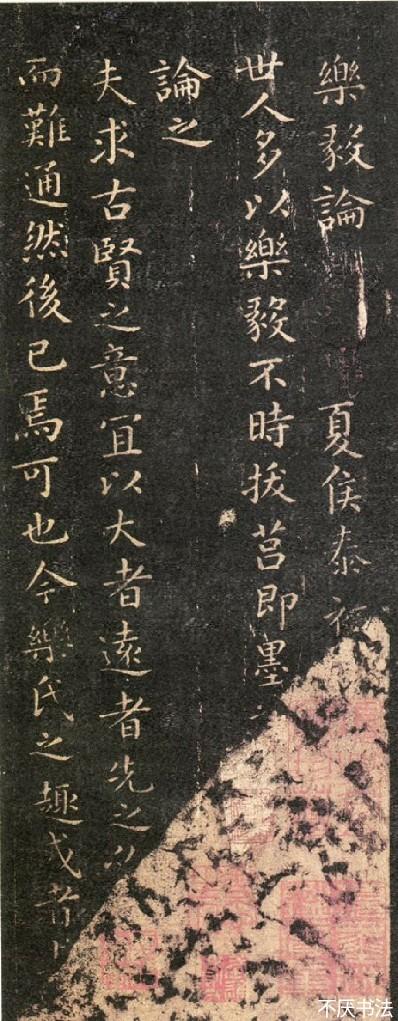 樂毅論 夏侯泰
世人多以樂毅不時拔莒即墨
論之
夫求古賢之意宜以大者遠者先之
而難通然後已焉可也今樂氏之趣或者
不厌书法